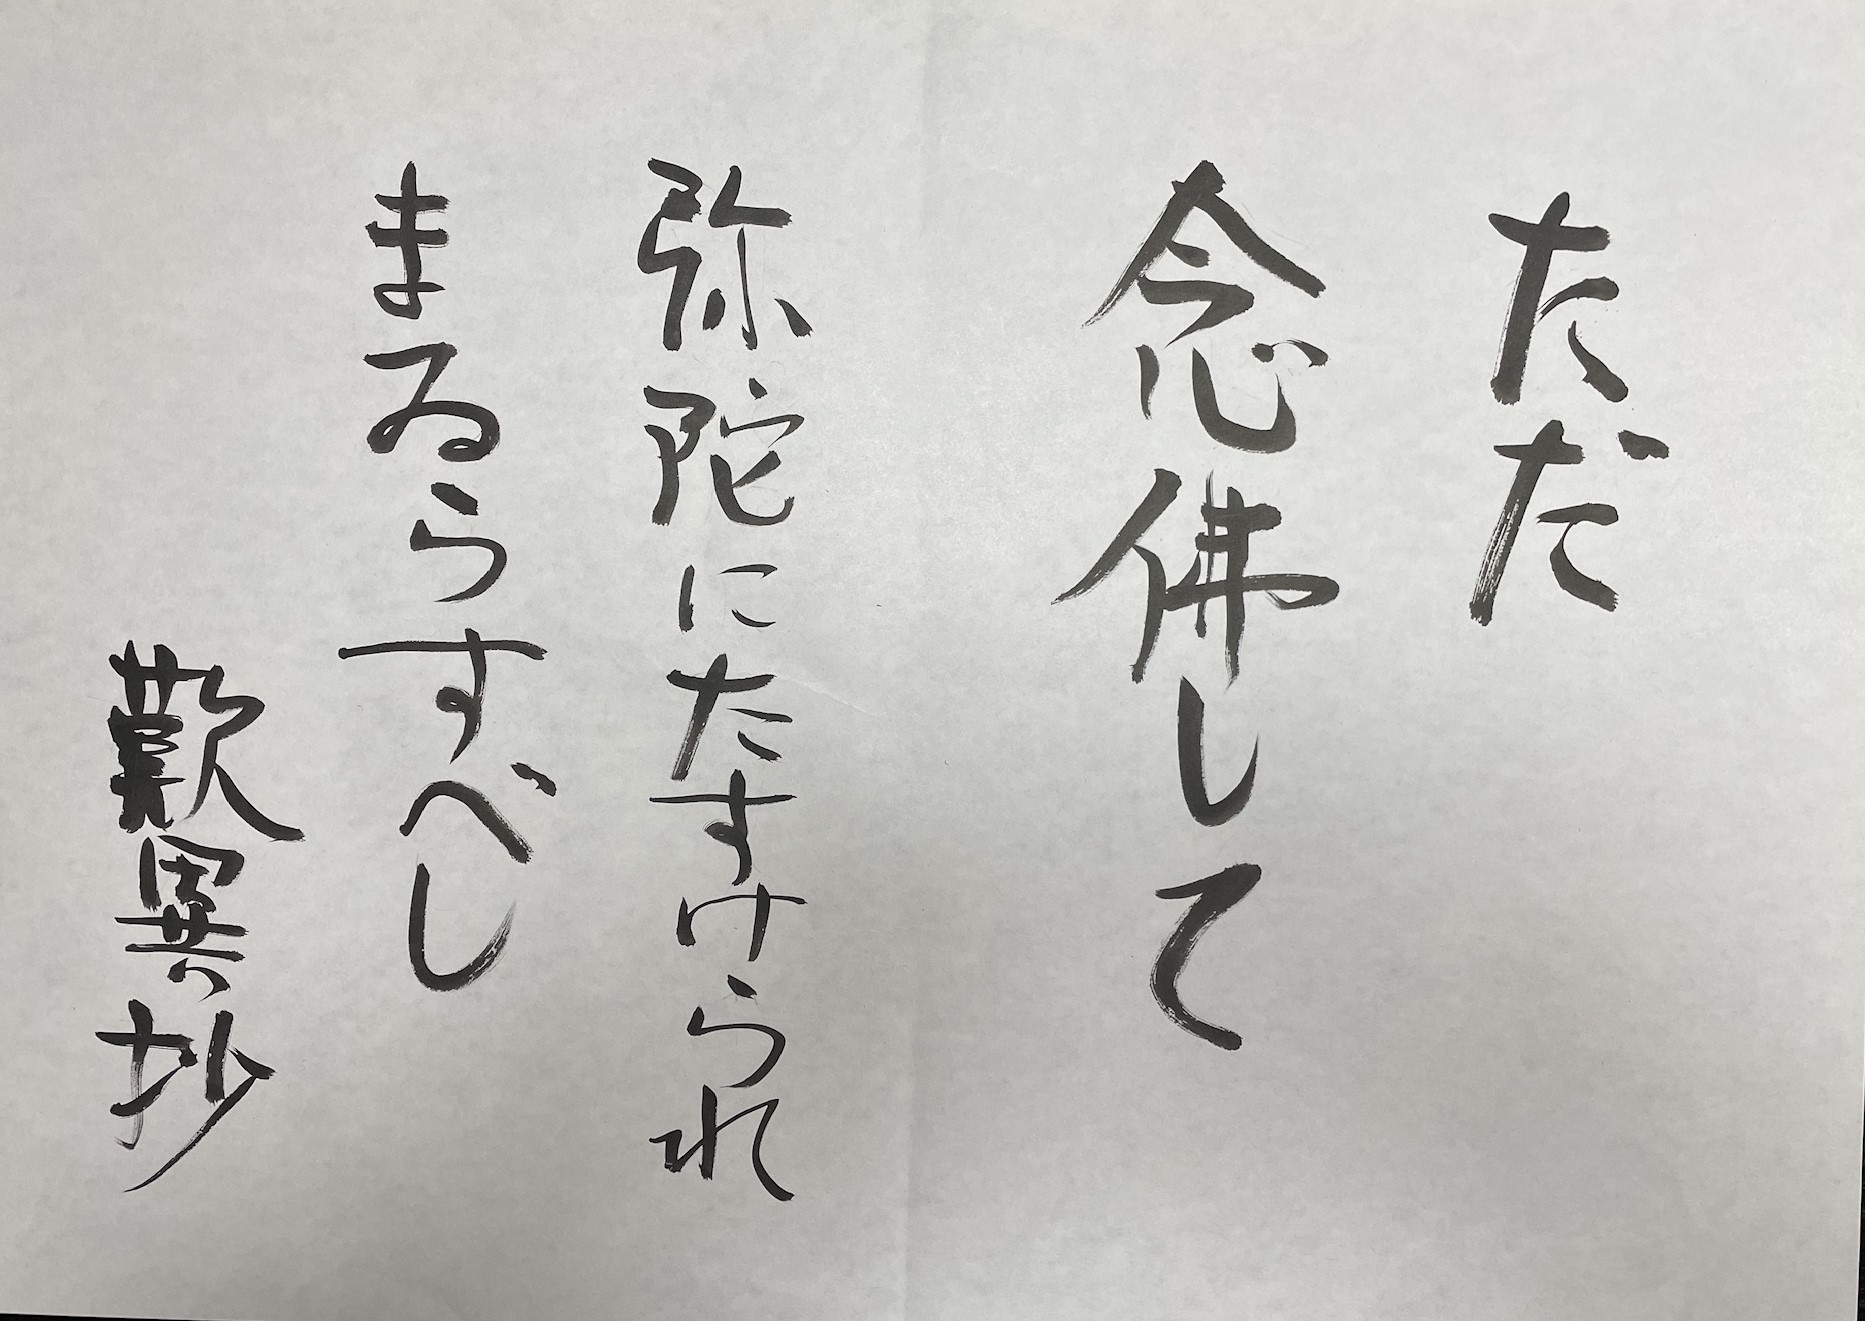 ただ
念佛して
弥陀にたすけられ
まゐらすべし
歎異抄